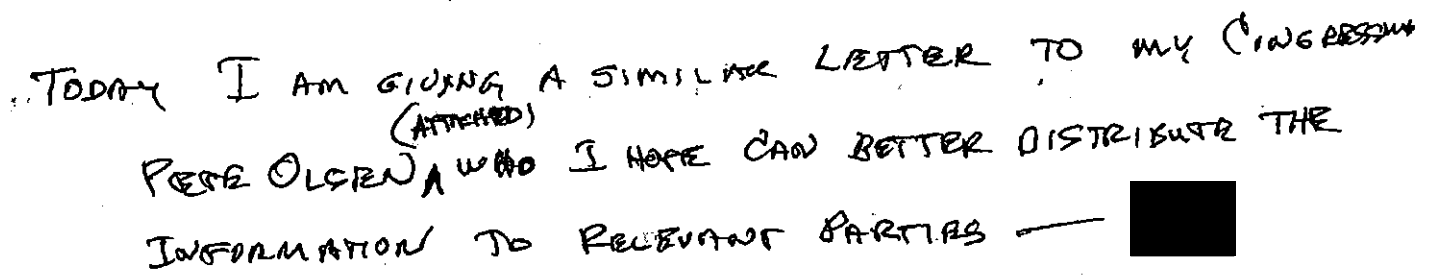 TODAY I AM GIVING A SIMILAR LETTER TO MY CONGRESSMAN
(ATTACHED)
PETE OLSEN ^ WHO I HOPE CAN BETTER DISTRIBUTE THE
INFORMATION TO RELEVANT PARTIES —